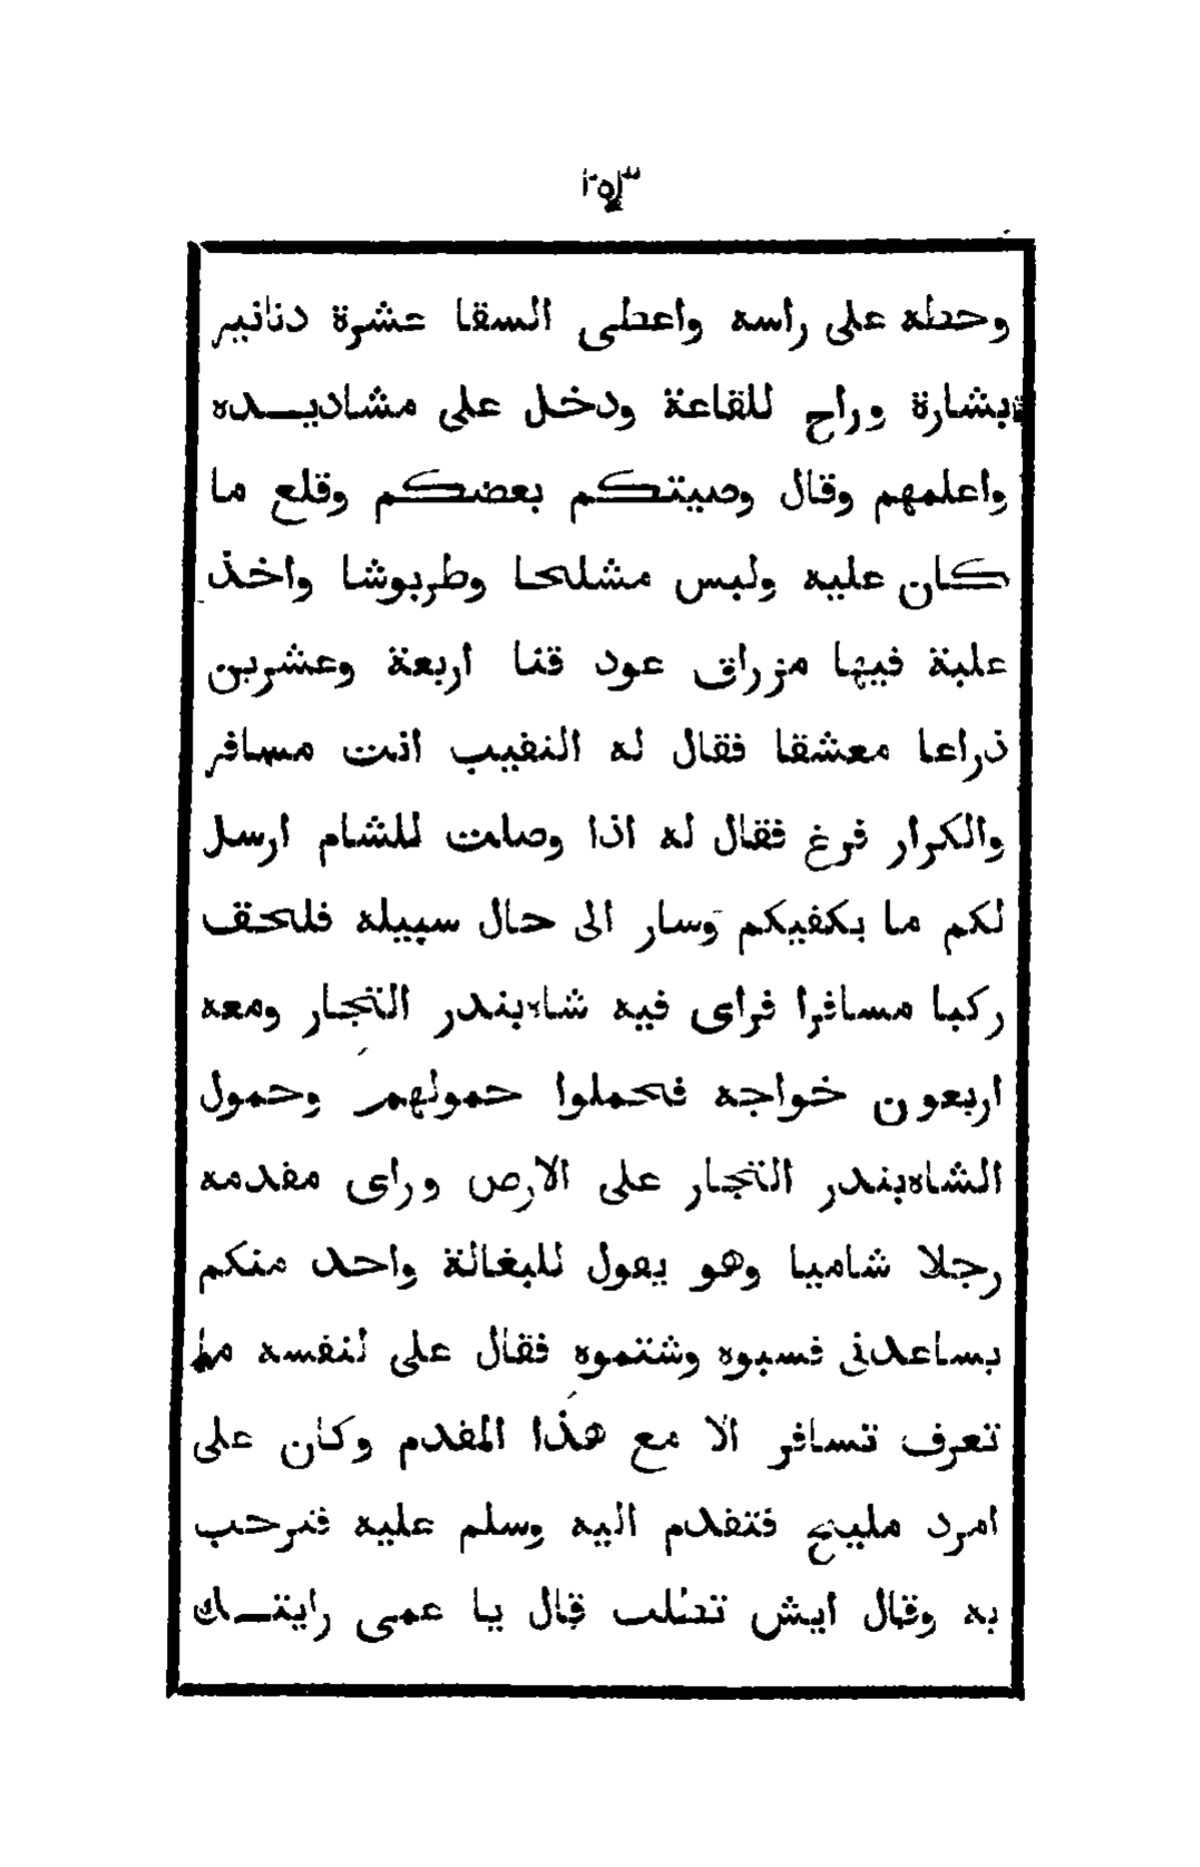 وحطه على راسه واعطى السقا عشرة دنانير
بشارة وراح للقاعة ودخل على مشاديده
واعلمهم وقال وصيتكم بعضكم وقلع ما
كان عليه ولبس مشلحا وطربوشا واخذ
علبة فيها مزراق عود قنا اربعة وعشرين
ذراعا معشقا فقال له النقيب انت مسافر
والكرار فرغ فقال له اذا وصلت للشام ارسل
لكم ما يكفيكم وسار الى حال سبيله فلحق
ركبا مسافرا فراى فيه شاه بندر التجار ومعه
اربعون خواجه فحملوا حمولهم وحمول
الشاه بندر التجار على الارض وراى مقدمه
رجلا شاميا وهو يقول للبغالة واحد منكم
يساعدنى فسبوه وشتموه فقال على لنفسه ما
تعرف تسافر الا مع هذا المقدم وكان على
امرد مليح فتقدم اليه وسلم عليه فرحب
به وقال ايش تطلب قال يا عمى رايتك